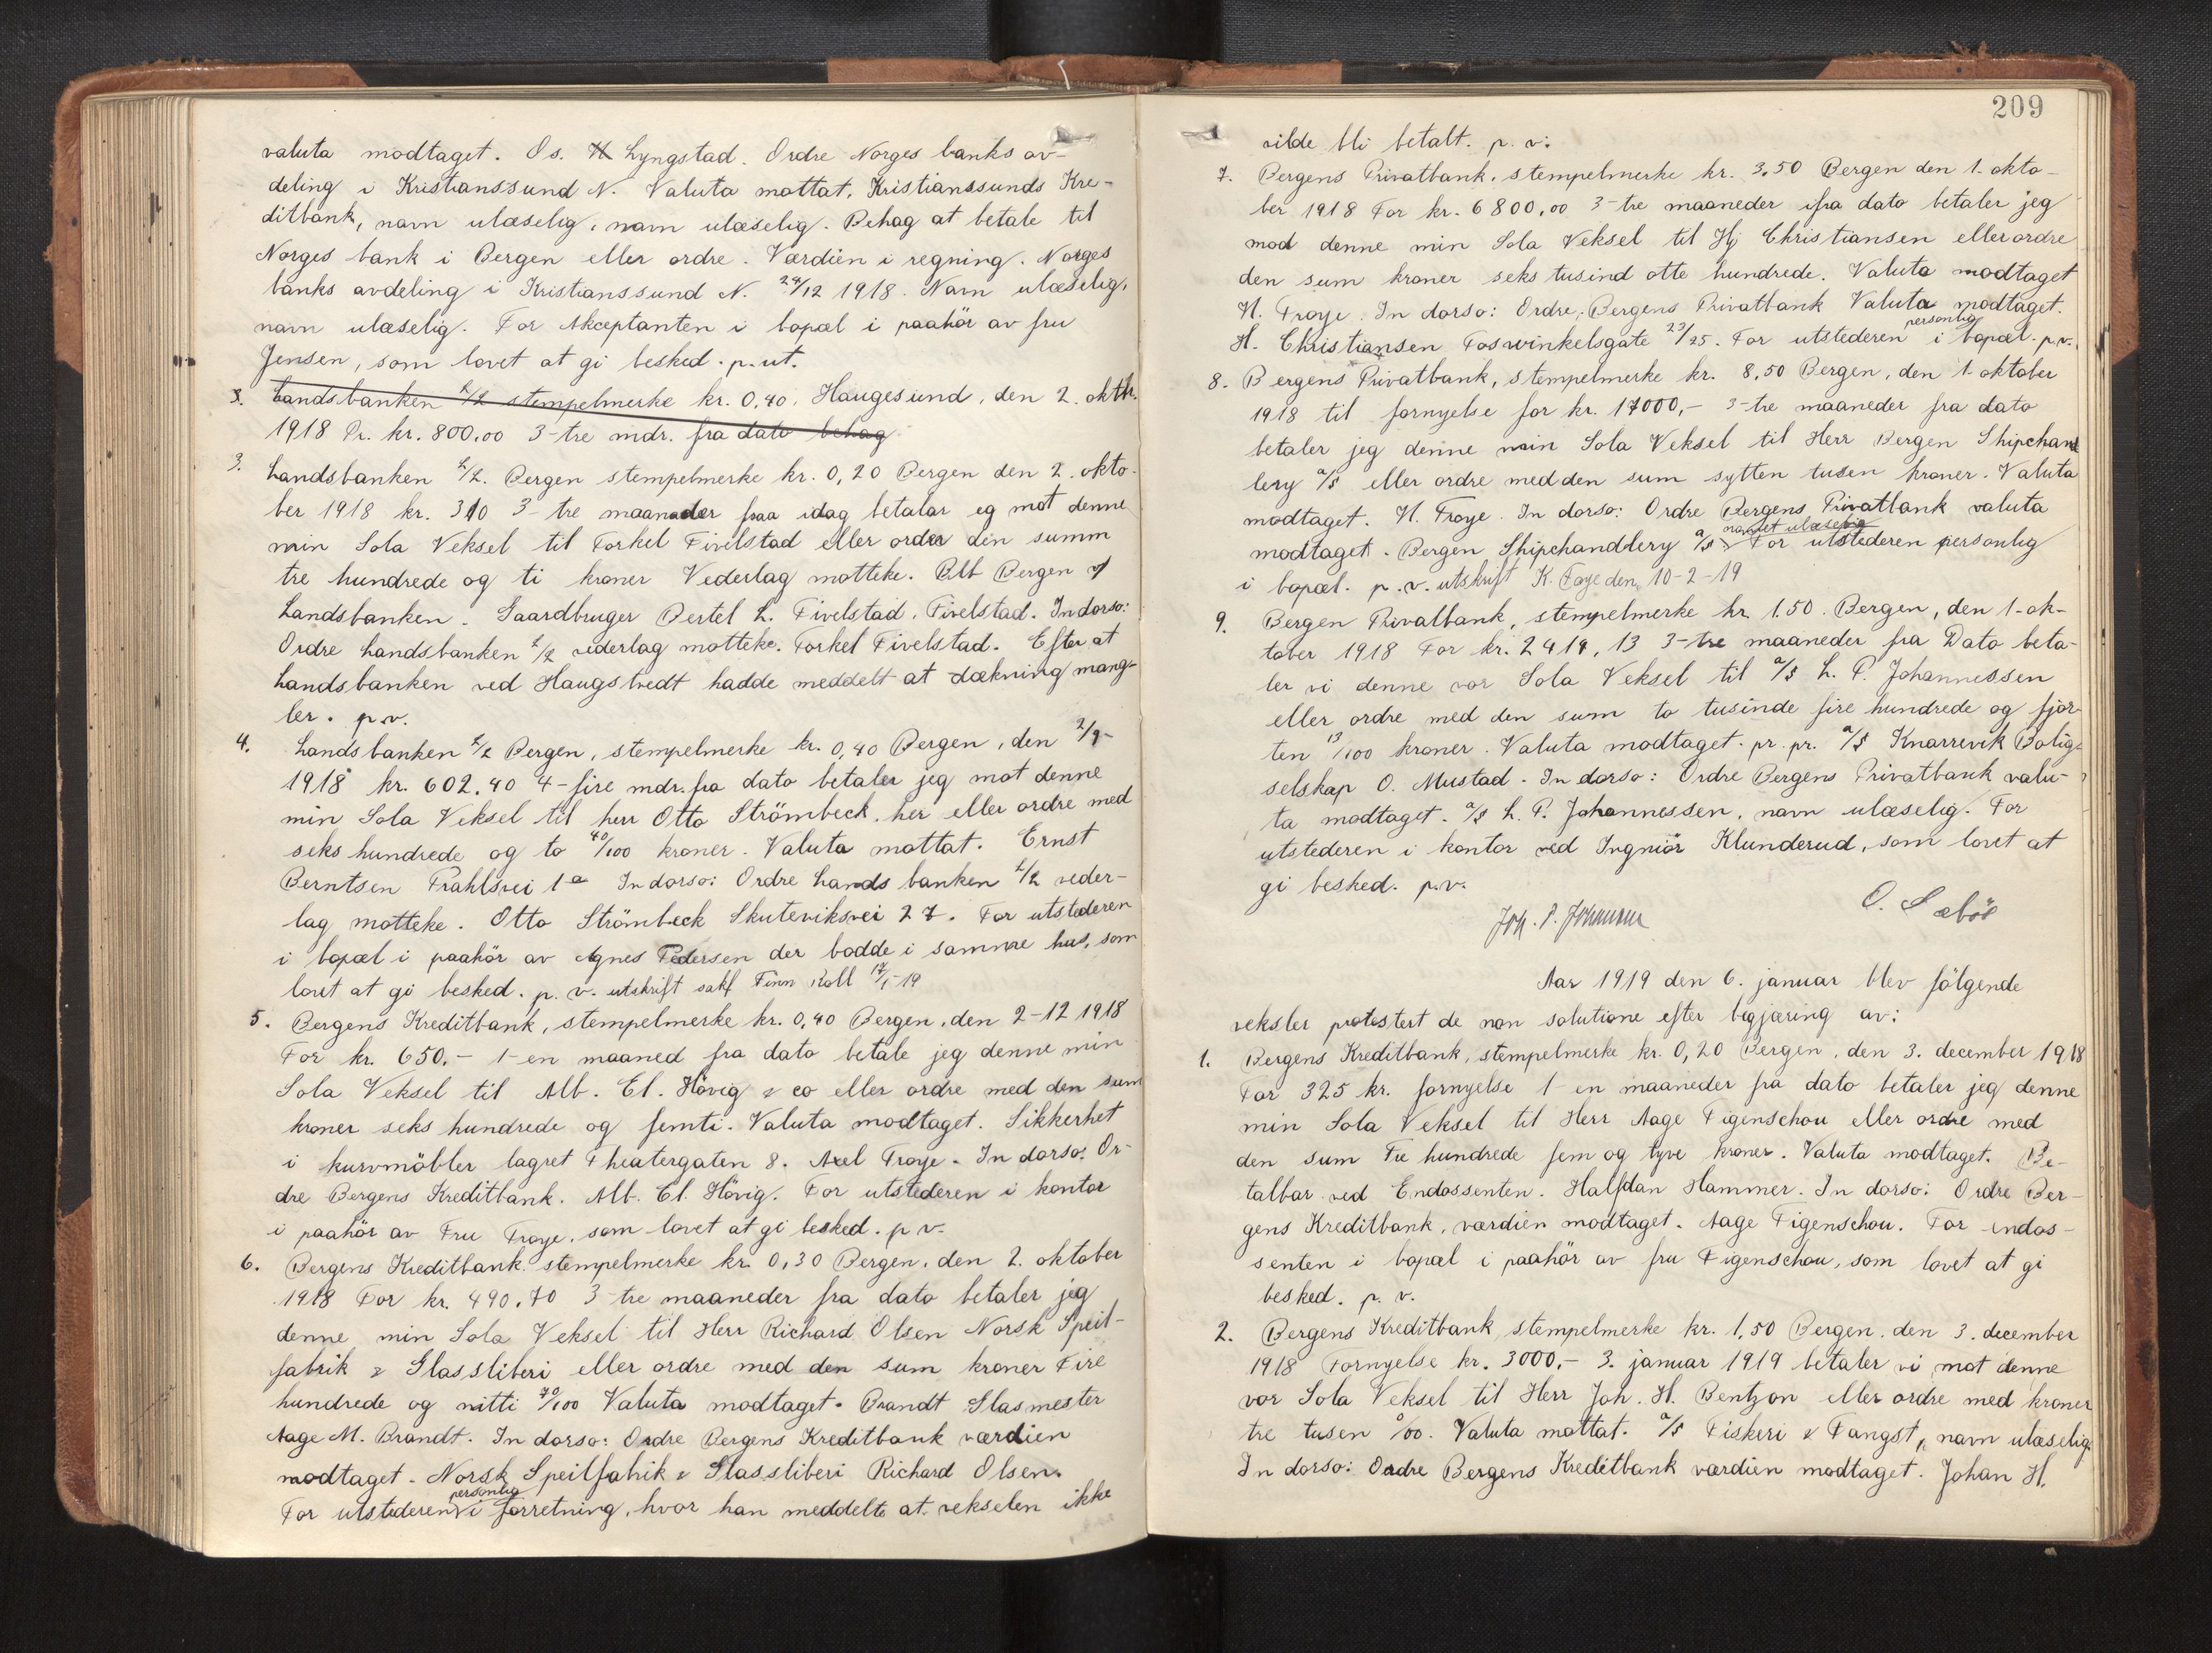 valuta modtaget. Os. Lyngstad. Ordre Norges banks av-
deling i Kristianssund N. Valuta mottat, Kristianssunds Kre-
ditbank, navn ulæselig, navn ulæselig. Behag at betale til
Norges bank i Bergen eller ordre. Værdien i regning. Norges
banks avdeling i Kristianssund N. 24/12 1918. Navn ulæselig,
navn ulæselig. For Akceptanten i bopæl i paahör av fru
Jensen, som lovet at gi besked. p. ut.
3. Landsbanken stempelmerke kr. 0,40. Haugesund, den 2. oktbr.
1918 Pr. kr. 800.00 3-tre mdr. fra dato behag
3. Landsbanken Bergen stempelmerke kr. 0,20 Bergen den 2. okto-
ber 1918 kr. 310 3-tre maanader fraa idag betalar eg mot denne
min Sola Veksel til Torkel Fivelstad eller order den summ
tre hundrede og ti kroner Vederlag motteke. Blb Bergen
Landsbanken. Gaardbruger Bertel L. Fivelstad, Fivelstad. In dorso:
Ordre Landsbanken vederlag motteke. Torkel Fivelstad. Efter at
Landsbanken ved Haugstvedt hadde meddelt at dækning mang-
ler. p.v.
4. Landsbanken Bergen, stempelmerke kr. 0,40 Bergen, den 2/9-
1918 kr. 602.40 4-fire mdr. fra dato betaler jeg mot denne
min Sola Veksel til herr Otto Strömbeck, her eller ordre med
seks hundrede og to 40/100 kroner. Valuta mottat. Ernst
Berntsen Prahlsvei 1a In dorso: Ordre Landsbanken veder-
lag motteke. Otto Strömbeck Skuteviksvei 27. For utstederen
i bopæl i paahör av Agnes Pedersen der bodde i samme hus, som
lovet at gi besked. p. v. utskrift sakf Finn Koll 17/1-19
5. Bergens Kreditbank, stempelmerke kr. 0,40 Bergen, den 2-12 1918
For kr. 650.- 1-en maaned fra dato betale jeg denne min
Sola Veksel til Alb. El. Hövig & co eller ordre med den sum
kroner seks hundrede og femti. Valuta modtaget. Sikkerhet
i kurvmöbler lagret Theatergaten 8. Axel Troye. In dorso: Or-
dre Bergens Kreditbank. Alb. El. Hövig. For utstederen i kontor
i paahör av Fru Troye, som lovet at gi besked. p v.
6. Bergens Kreditbank. stempelmerke kr. 0,30 Bergen, den 2. oktober
1918 For kr. 490.70 3-tre maaneder fra dato betaler jeg
denne min Sola Veksel til Herr Richard Olsen Norsk Speil-
fabrik & Glassliberi eller ordre med den sum kroner Fire
hundrede og nitti 70/100 Valuta modtaget. Brandt Glasmester
Aage M. Brandt. In dorso: Ordre Bergens Kreditbank værdien
modtaget. Norsk Speilfabrik & Glassliberi Richard Olsen.
For utstederen personlig i forretning, hvor han meddelte at vekselen ikke
209
vilde bli betalt. p. v.
7. Bergens Privatbank, stempelmerke kr. 3,50 Bergen den 1. okto-
ber 1918 For kr. 6800,00 3-tre maaneder ifra dato betaler jeg
mod denne min Sola Veksel til Hj Christiansen eller ordre
den sum kroner seks tusind otte hundrede. Valuta modtaget
H. Troye. In dorso: Ordre, Bergens Privatbank Valuta modtaget.
H. Christiansen Foswinkelsgate 23/25. For utstederen personlig i bopæl. p.v.
8. Bergens Privatbank, stempelmerke kr. 8,50 Bergen, den 1. oktober
1918 til fornyelse for kr. 17000,- 3-tre maaneder fra dato
betaler jeg denne min Sola Veksel til Herr Bergen Shipchand
lery a/s eller ordre med den sum sytten tusen kroner. Valuta
modtaget. H. Troye. In dorso: Ordre Bergens Privatbank valuta
modtaget. Bergen Shipchandlery a/s navnet ulæselig For utstederen personlig
i bopæl. p.v. utskrift K. Faye den 10-2-19
9. Bergen Privatbank, stempelmerke kr. 1.50. Bergen, den 1-ok-
tober 1918 For kr. 2414,13 3-tre maaneder fra Dato beta-
ler vi denne vor Sola Veksel til a/s L. P. Johannessen
eller ordre med den sum to tusinde fire hundrede og fjor-
ten 13/100 kroner. Valuta modtaget. pr. pr. a/s Knarrevik Bolig-
selskap O. Mustad. In dorso: Ordre Bergens Privatbank valu-
ta modtaget. a/s L. P. Johannessen, navn ulæselig. For
utstederen i kontor ved Ingniör Klunderud, som lovet at
gi besked. p.v.
O. Sæböe
Aar 1919 den 6. januar blev fölgende
veksler protestert de non solutione efter begjæring av:
1. Bergens Kreditbank, stempelmerke kr. 0,20 Bergen, den 3. december 1918
For 325 kr. fornyelse 1-en maaneder fra dato betaler jeg denne
min Sola Veksel til Herr Aage Figenschou eller ordre med
den sum Tre hundrede fem og tyve kroner. Valuta modtaget. Be-
talbar ved Endossenten. Halfdan Hammer. In dorso: Ordre Ber-
gens Kreditbank, værdien modtaget. Aage Figenschou. For endos-
senten i bopæl i paahör av fru Figenschou, som lovet at gi
besked. p. v.
2. Bergens Kreditbank, stempelmerke kr. 1,50 Bergen. den 3. december
1918 Fornyelse kr. 3000.- 3. januar 1919 betaler vi mot denne
vor Sola Veksel til Herr Joh. H. Bentzon eller ordre med kroner
tre tusen 0/00. Valuta mottat. a/s Fiskeri & Fangst, navn ulæselig.
In dorso: Ordre Bergens Kreditbank værdien modtaget. Johan H.